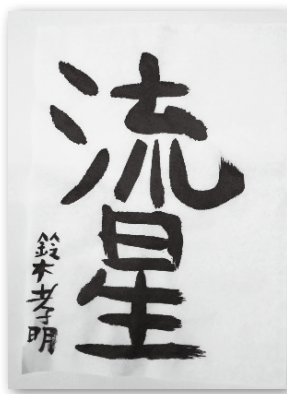 流星
鈴木孝明